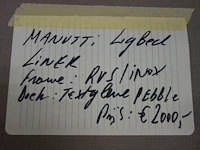 MANUTTI Ligbed
LINER
Frame: RVS/inox
Doek: Textylene PEBBLE
Prijs: € 2000,-